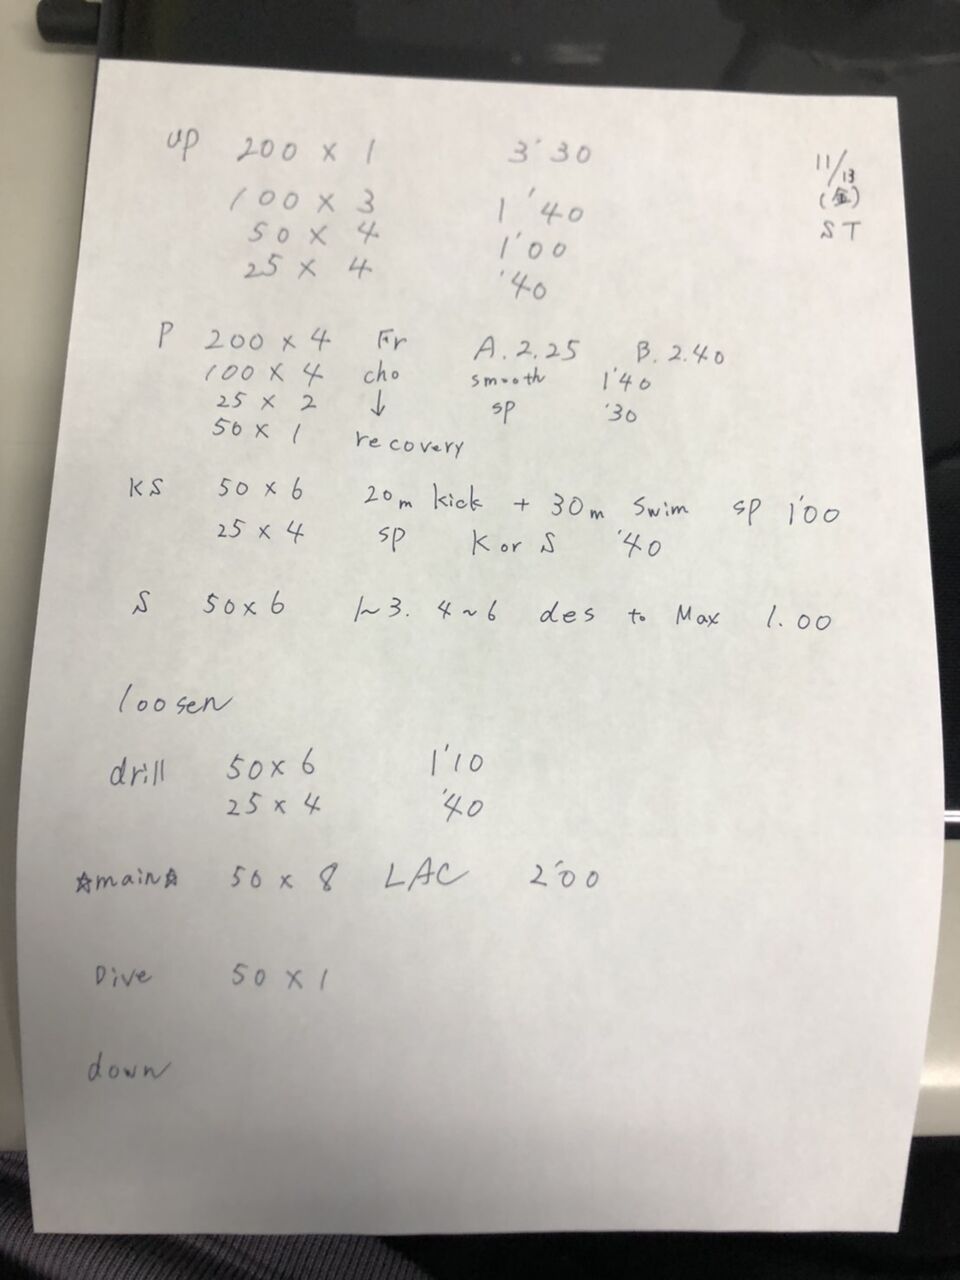 up 200 × 1 3'30
100 × 3 1'40
50 × 4 1'00
25 × 4 '40
11/13
(金)
ST
P 200 × 4 Fr A. 2.25 B. 2.40
100 × 4 cho smooth 1'40
25 × 2 ↓ sp '30
50 × 1 recovery
KS 50 × 6 20m kick + 30m Swim sp 1'00
25 × 4 sp K or S '40
S 50 × 6 1~3. 4~6 des to Max 1.00
loosen
drill 50 × 6 1'10
25 × 4 '40
☆main☆ 50 × 8 LAC 2'00
Dive 50 × 1
down